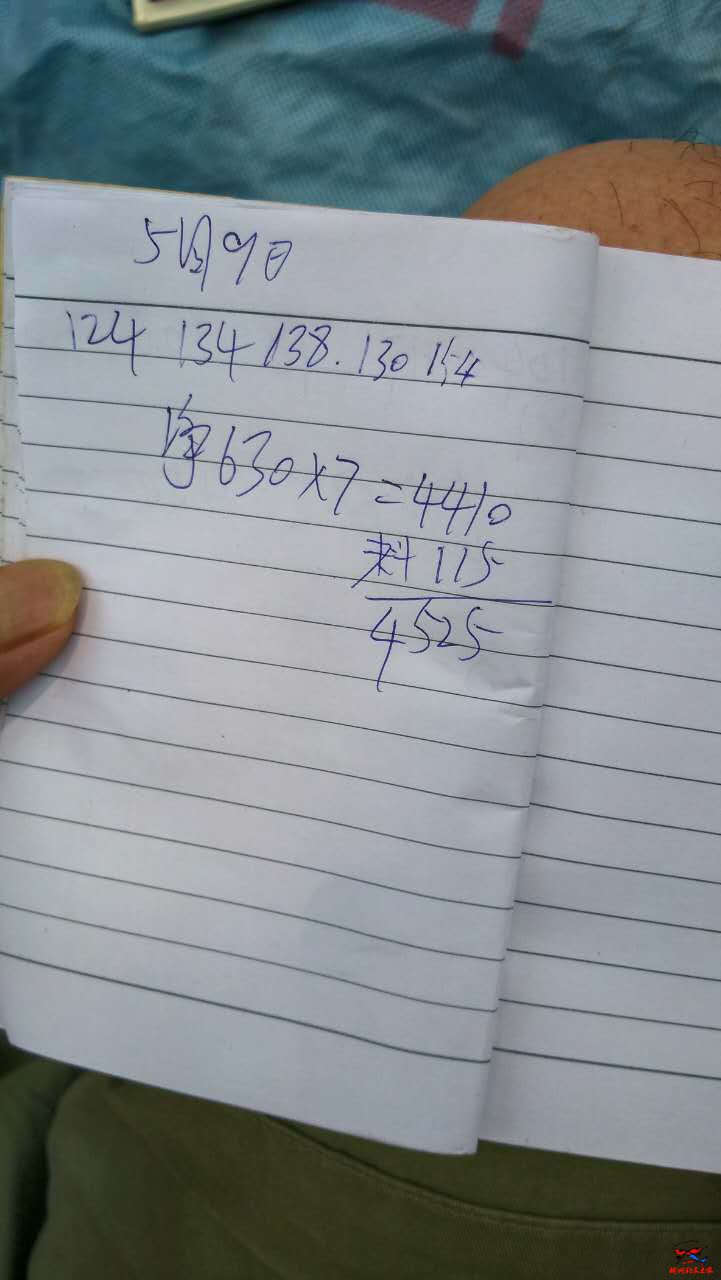 5月9日
124 134 138. 130 154
630×7=4410
料 115
4525